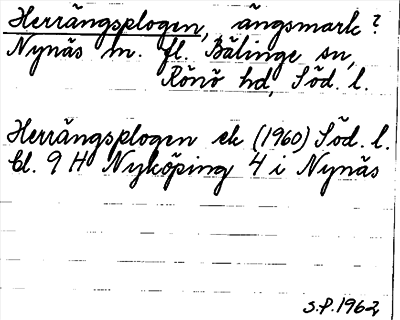 Herrängsplogen, ängsmark?
Nynäs m. fl. Bälinge sn,
Rönö hd, Söd. l.
Herrängsplogen ek (1960) Söd. l.
bl. 9 H Nyköping 4 i Nynäs
S.P. 1962